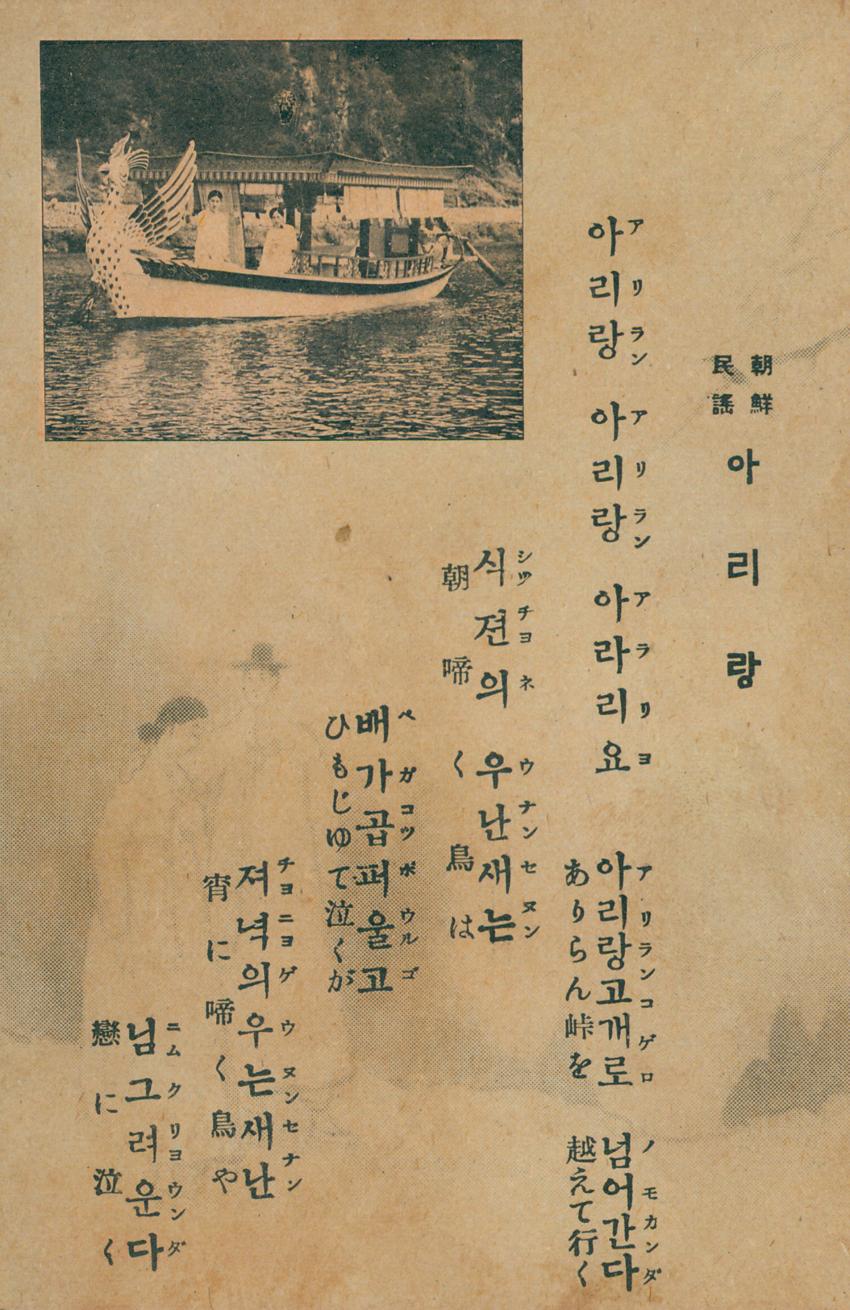 朝鮮
民謠
아리랑
アリラン アリラン アラリヨ
아리랑 아리랑 아라리요
アリランコゲロ ノモカンダ
아리랑고개로 넘어간다
ありらん峠を 越えて行く
シツチヨネ ウナンセヌン
식젼의 우난새는
朝啼く鳥は
ペガコツポウルゴ
배가곱퍼울고
ひもじゆて泣くが
チヨニヨゲ ウヌンセナン
져녁의우는새난
宵に啼く鳥や
ニムクリヨウンダ
님그려운다
戀に泣く